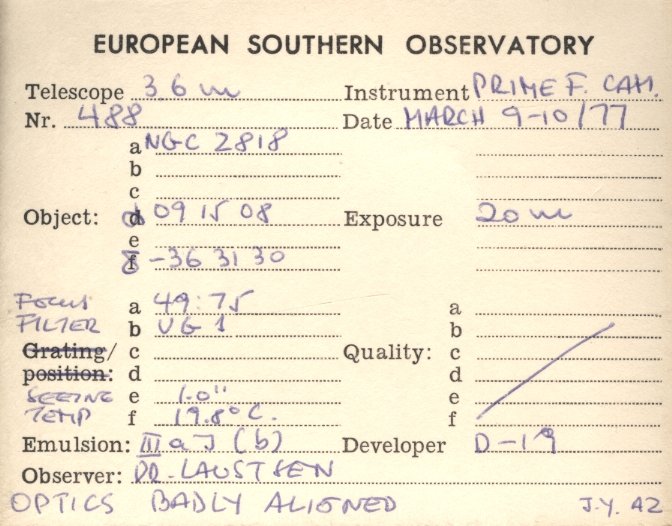 EUROPEAN SOUTHERN OBSERVATORY
Telescope 3.6 m Instrument PRIME F. CAM.
Nr. 488 Date MARCH 9-10/77
a NGC 2818
b
c
Object: α 09 15 08 Exposure 20 m
e
δ -36 31 30
Focus a 49:75 a
FILTER b UG 1 b
Grating/ c Quality: c
position: d d
SEEING e 1.0" e
TEMP f 19.8° C. f
Emulsion: III a J (b) Developer D-19
Observer: DR. LAUSTSEN
OPTICS BADLY ALIGNED J.Y. A2